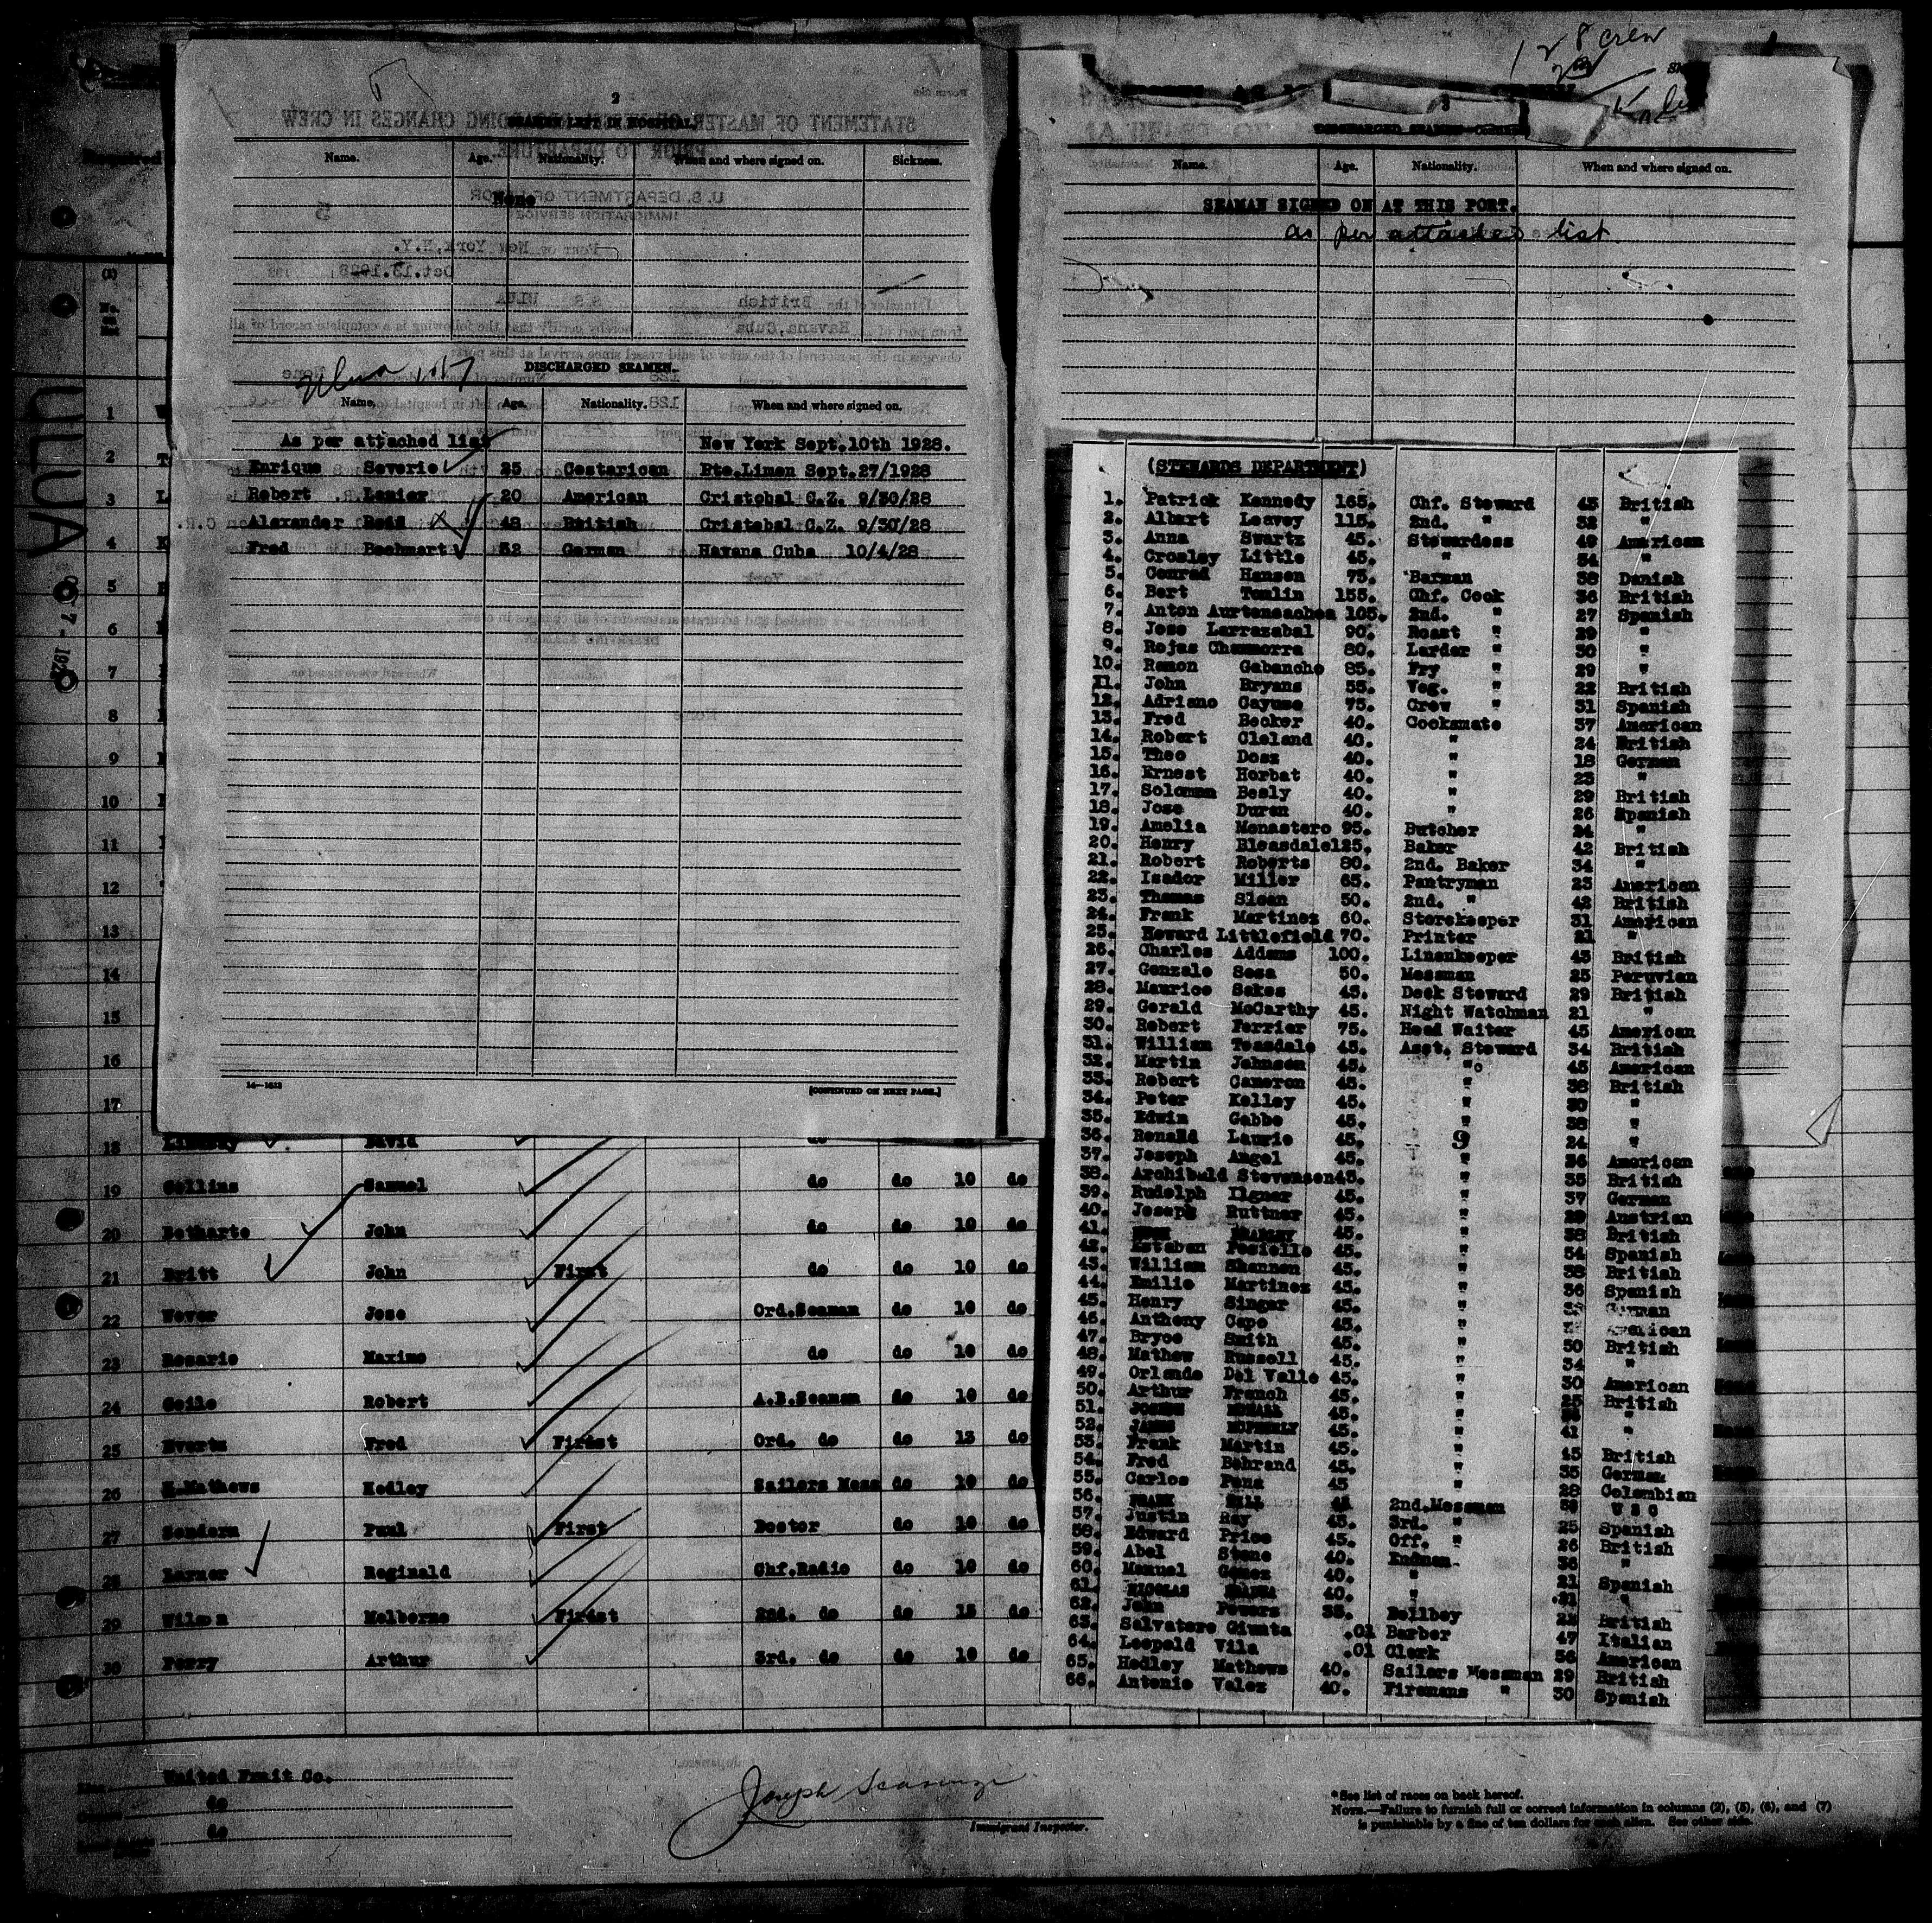 2
SEAMAN LEFT IN HOSPITAL
Name. Age. Nationality. When and where signed on. Sickness.
None
Ulua 10/7
DISCHARGED SEAMEN.
Name. Age. Nationality. When and where signed on.
As per attached list New York Sept.10th 1928.
Enrique Severie 25 Costarican Pte.Limon Sept.27/1928
Robert Lanier 20 American Cristobal C.Z. 9/30/28
Alexander Reid 48 British Cristobal C.Z. 9/30/28
Fred Boehmert 32 German Havana Cuba 10/4/28
14—1613
[CONTINUED ON NEXT PAGE.]
128 crew
3
DISCHARGED SEAMEN
Name. Age. Nationality. When and where signed on.
SEAMAN SIGNED ON AT THIS PORT.
as per attached list
(STEWARDS DEPARTMENT)
1. Patrick Kennedy 165. Chf. Steward 45 British
2. Albert Leavey 115. 2nd. " 32 "
3. Anna Swartz 45. Stewardess 49 American
4. Crosley Little 45. " 34 "
5. Conrad Hansen 75. Barman 38 Danish
6. Bert Tomlin 155. Chf. Cook 36 British
7. Anton Aurteneachea 105. 2nd. " 27 Spanish
8. Jose Larrazabal 90. Roast " 29 "
9. Rojas Chammorra 80. Larder " 30 "
10. Ramon Gabancho 85. Fry " 29 "
11. John Bryans 55. Veg. " 22 British
12. Adriano Cayuso 75. Crew " 31 Spanish
13. Fred Becker 40. Cooksmate 37 American
14. Robert Cleland 40. " 24 British
15. Theo Dosz 40. " 18 German
16. Ernest Horbat 40. " 23 "
17. Soloman Bealy 40. " 29 British
18. Jose Duran 40. " 26 Spanish
19. Amelia Monastero 95. Butcher 24 "
20. Henry Bleasdale 125. Baker 42 British
21. Robert Roberts 80. 2nd. Baker 34 "
22. Isador Miller 65. Pantryman 23 American
23. Thomas Sloan 50. 2nd. " 42 British
24. Frank Martinez 60. Storekeeper 31 American
25. Howard Littlefield 70. Printer 21 "
26. Charles Addams 100. Linenkeeper 43 British
27. Gonzalo Sosa 50. Messman 25 Peruvian
28. Maurice Sakes 45. Deck Steward 29 British
29. Gerald McCarthy 45. Night Watchman 21 "
30. Robert Ferrier 75. Head Waiter 45 American
31. William Teasdale 45. Asst. Steward 34 British
32. Martin Johnson 45. " 45 American
33. Robert Cameron 45. " 38 British
34. Peter Kelley 45. " 30 "
35. Edwin Gabbe 45. " 38 "
36. Ronald Laurie 45. 9 24 "
37. Joseph Angel 45. " 36 American
38. Archibald Stevenson 45. " 35 British
39. Rudolph Ilgner 45. " 37 German
40. Joseph Ruttner 45. " 29 Austrian
41. 45. " 38 British
42. Estaban Posiello 45. " 54 Spanish
43. William Shannon 45. " 38 British
44. Emilio Martinez 45. " 36 Spanish
45. Henry Singer 45. " German
46. Anthony Cape 45. " American
47. Bryce Smith 45. " 50 British
48. Mathew Russell 45. " 34 "
49. Orlando Del Valle 45. " 30 American
50. Arthur French 45. " 25 British
51. 45. " "
52. JAMES 45. " 41 "
53. Frank Martin 45. " 45 British
54. Fred Behrand 45. " 35 German
55. Carlos Pena 45 " 28 Colombian
56. FRANK HILL 2nd.Messman U S C
57. Justin Ray 45. 3rd. " 25 Spanish
58. Edward Price 45. Off. " 26 British
59. Abel Stone 40. Endman. 36 "
60. Manuel Gomez 40. " 21 Spanish
61. NICOLAS 40. " 21 "
62. John Powers 35. Bellboy 22 British
63. Salvatore Giunta .01 Barber 47 Italian
64. Leopold Vila .01 Clerk 56 American
65. Hedley Mathews 40. Sailors Messman 29 British
66. Antonio Valez 40. Firemans " 30 Spanish
ULUA
OCT 7 - 1928
1
2
3
4
5
6
7
8
9
10
11
12
13
14
15
16
17
18 David
19 Collins Samuel do do 10 do
20 Betharte John do do 10 do
21 Britt John First do do 10 do
22 Wever Jose Ord.Seaman do 10 do
23 Rosario Maximo do do 10 do
24 Geile Robert A.B.Seaman do 10 do
25 Evertz Fred First Ord. do do 13 do
26 H.Mathews Hedley Sailors Mess do 10 do
27 Sondern Paul First Doctor do 10 do
28 Larner Reginald Chf.Radio do 10 do
29 Wilson Melborne First 2nd. do do 15 do
30 Perry Arthur 3rd. do do 10 do
United Fruit Co.
do
do
Joseph
Immigrant Inspector.
*See list of races on back hereof.
NOTE.—Failure to furnish full or correct information in columns (2), (5), (6), and (7)
is punishable by a fine of ten dollars for each alien. See other side.